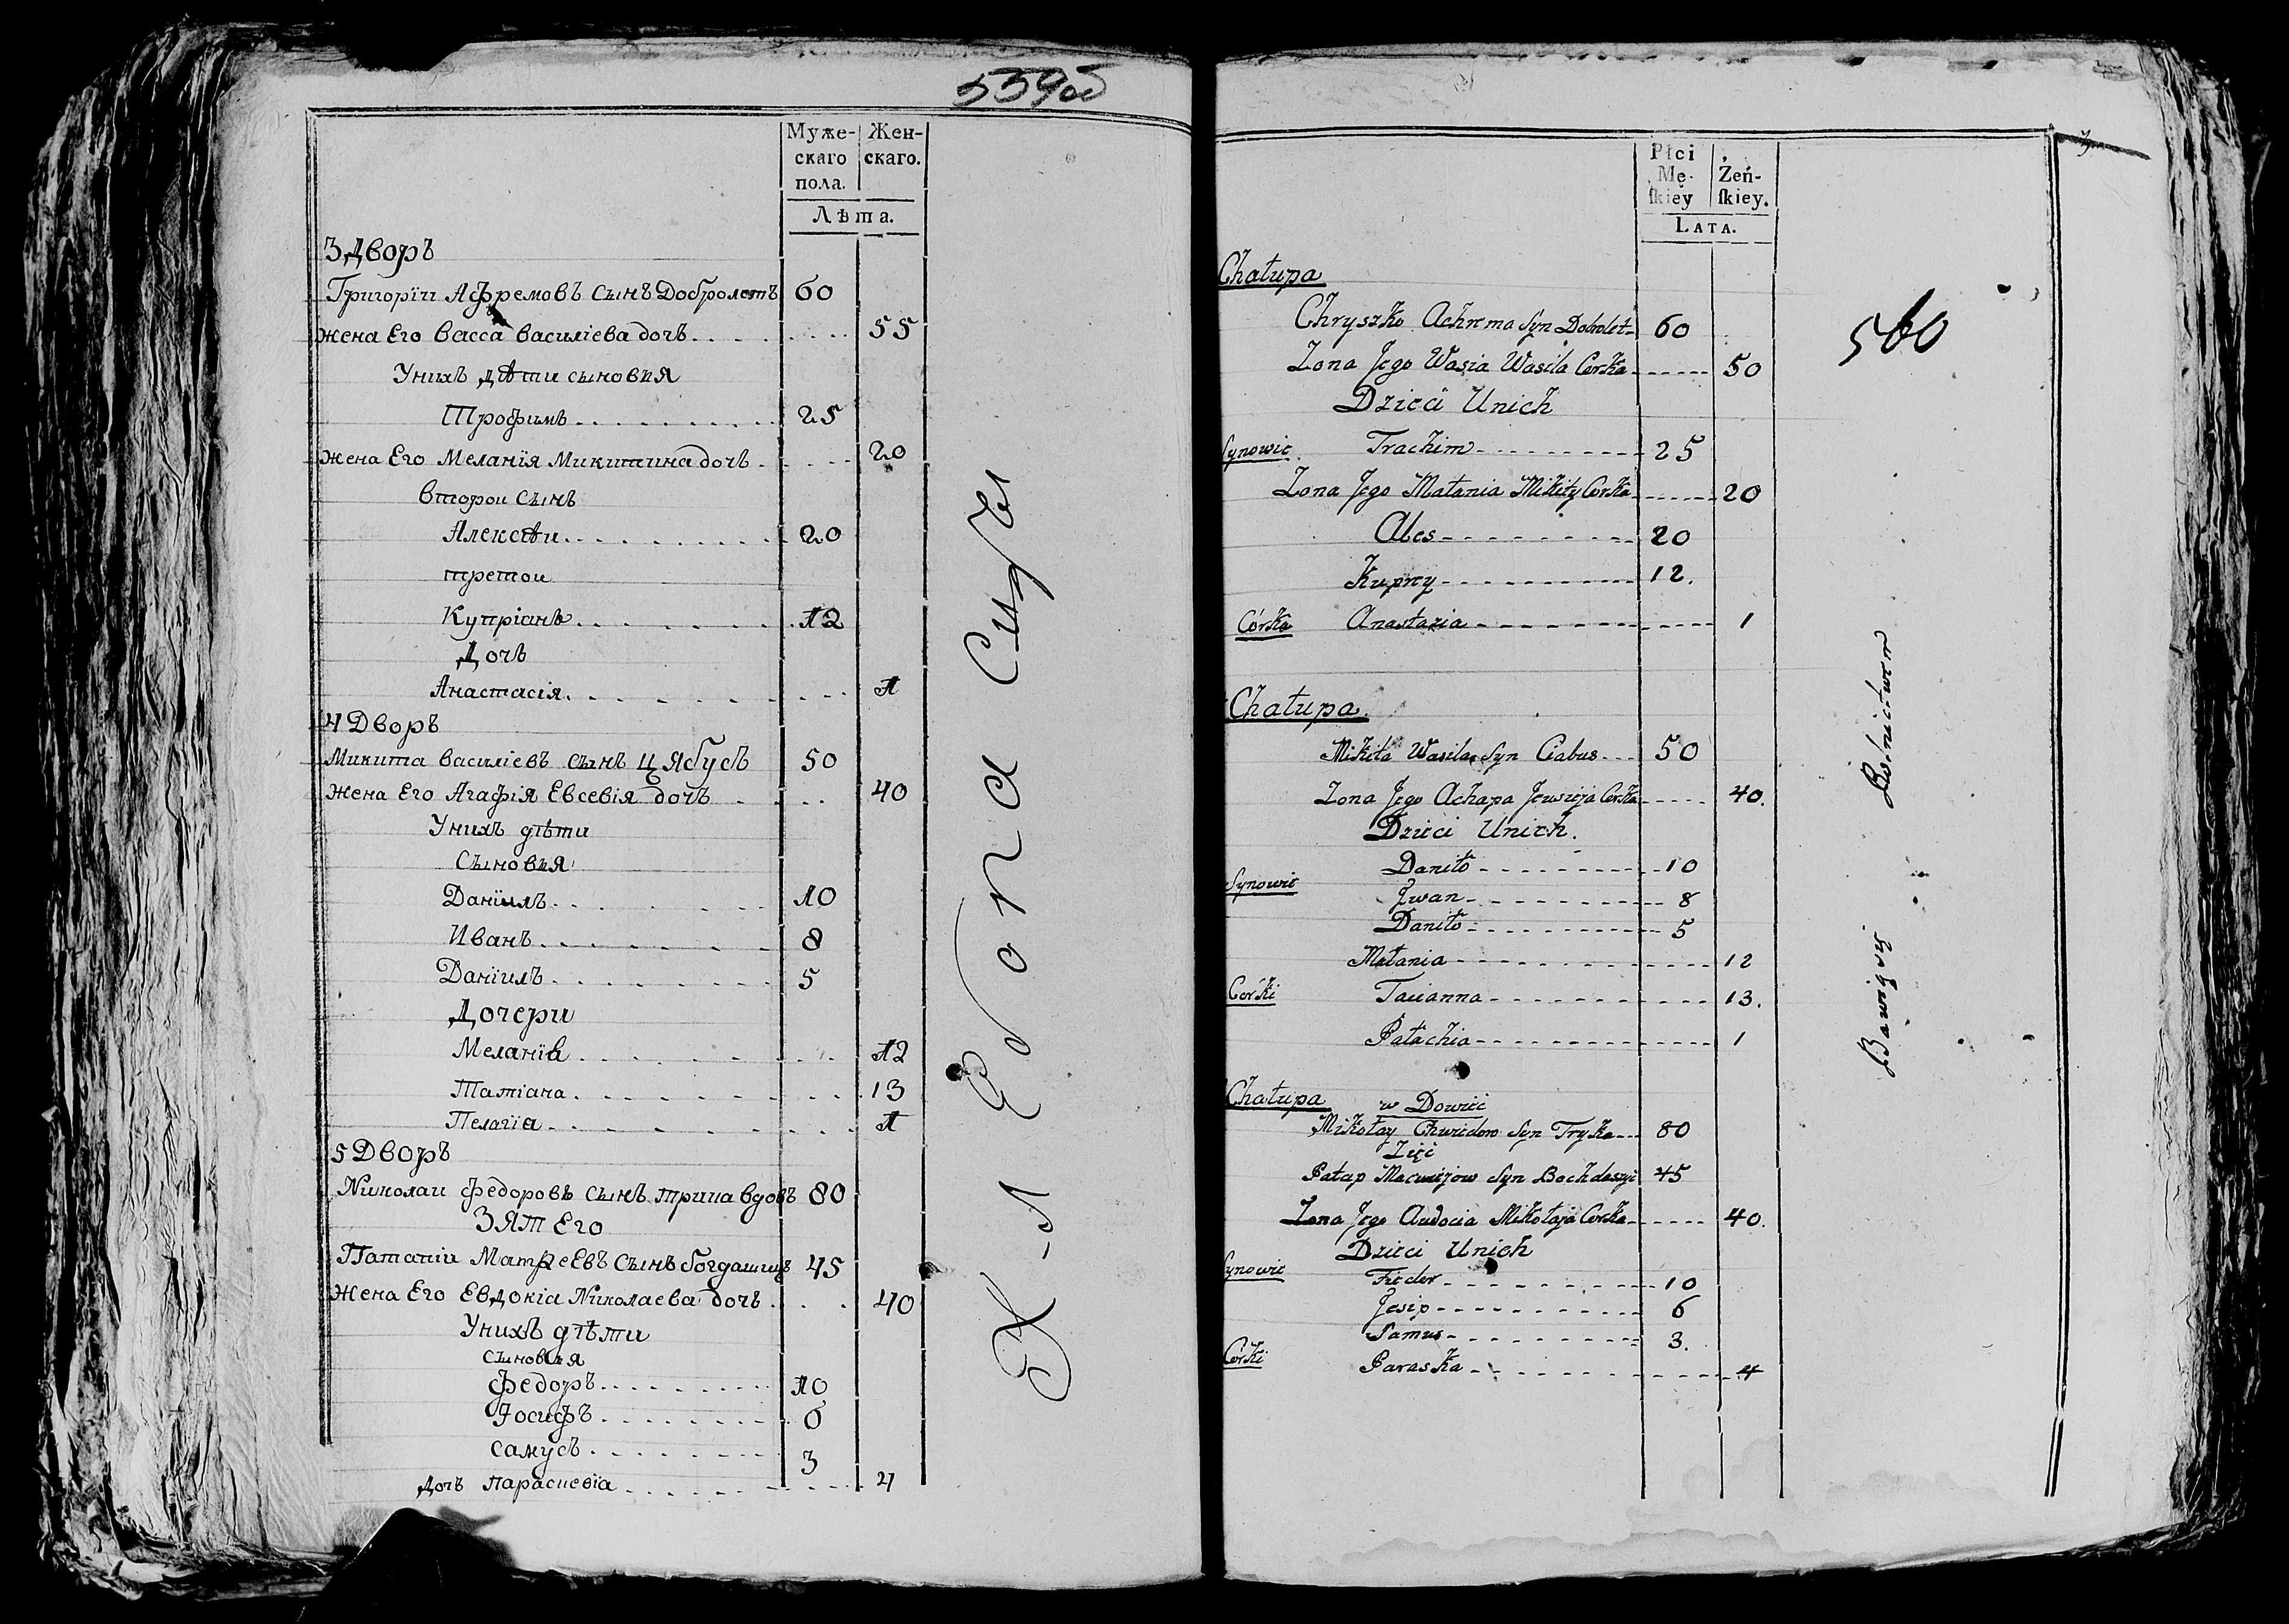 559об
Муже-
скаго
пола.
Жен-
скаго.
Лѣта.
3 Дворъ
Григорïи Афремовъ сынъ Добролетъ 60
жена Его Васса василïева дочъ 55
Унихъ дѣти сыновья
Трофимъ 25
жена Его Меланïя Микитина дочъ 20
второи сынъ
Алексѣи 20
третои
Купрïанъ 12
Дочъ
Анастасïя 1
4 Дворъ
Микита василïевъ сынъ Цябусъ 50
жена Его Агафïя Евсевïя дочъ 40
Унихъ дѣти
Сыновья
Данïилъ 10
Иванъ 8
Данïилъ 5
Дочери
Меланïя 12
Татïана 13
Пелагïа 1
5 Дворъ
Николаи федоровъ сынъ трика вдовъ 80
ЗЯТ ЕГО
Патапïи Матфеевъ сынъ богдашицъ 45
жена Его Евдокïа Николаева дочъ 40
Унихъ дѣти
сыновья
федоръ 10
Iосифъ 6
самусъ 3
Дочъ параскевïа 4
Płci
Mę-
ſkiey
Żeń-
ſkiey.
LATA.
560
Chałupa
Chryszko Achrema Syn Dobolet 60
Zona Jego Wasia Wasila Corka 50
Dzieci Unich
Synowie Trachim 25
Zona Jego Małania Mikity Corka 20
Ales 20
Kupry 12.
Córka Anastazia 1
Chałupa
Mikita Wasila Syn Ciabus 50
Zona Jego Achapa Jewsieja Corka 40.
Dzieci Unich.
Synowie Daniło 10
Jwan 8
Daniło 5
Małania 12
Corki Tacianna 13.
Pałachia 1
Chałupa w Dowiec
Mikołay Chwiedoro Syn Tryka 80
Zięć
Patap Maciejow Syn Bochdaszyc 45
Zona Jego Audocia Mikołaja Corka 40.
Dzieci Unich
Synowie Fiedor 10
Jesip 6
Samus 3.
Corki Paraska 4